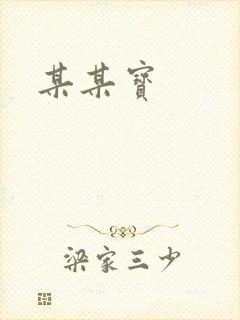 某某寶
梁家三少